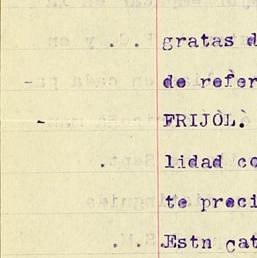 gratas d
de refer
FRIJOL.
lidad co
te preci
Estn cat